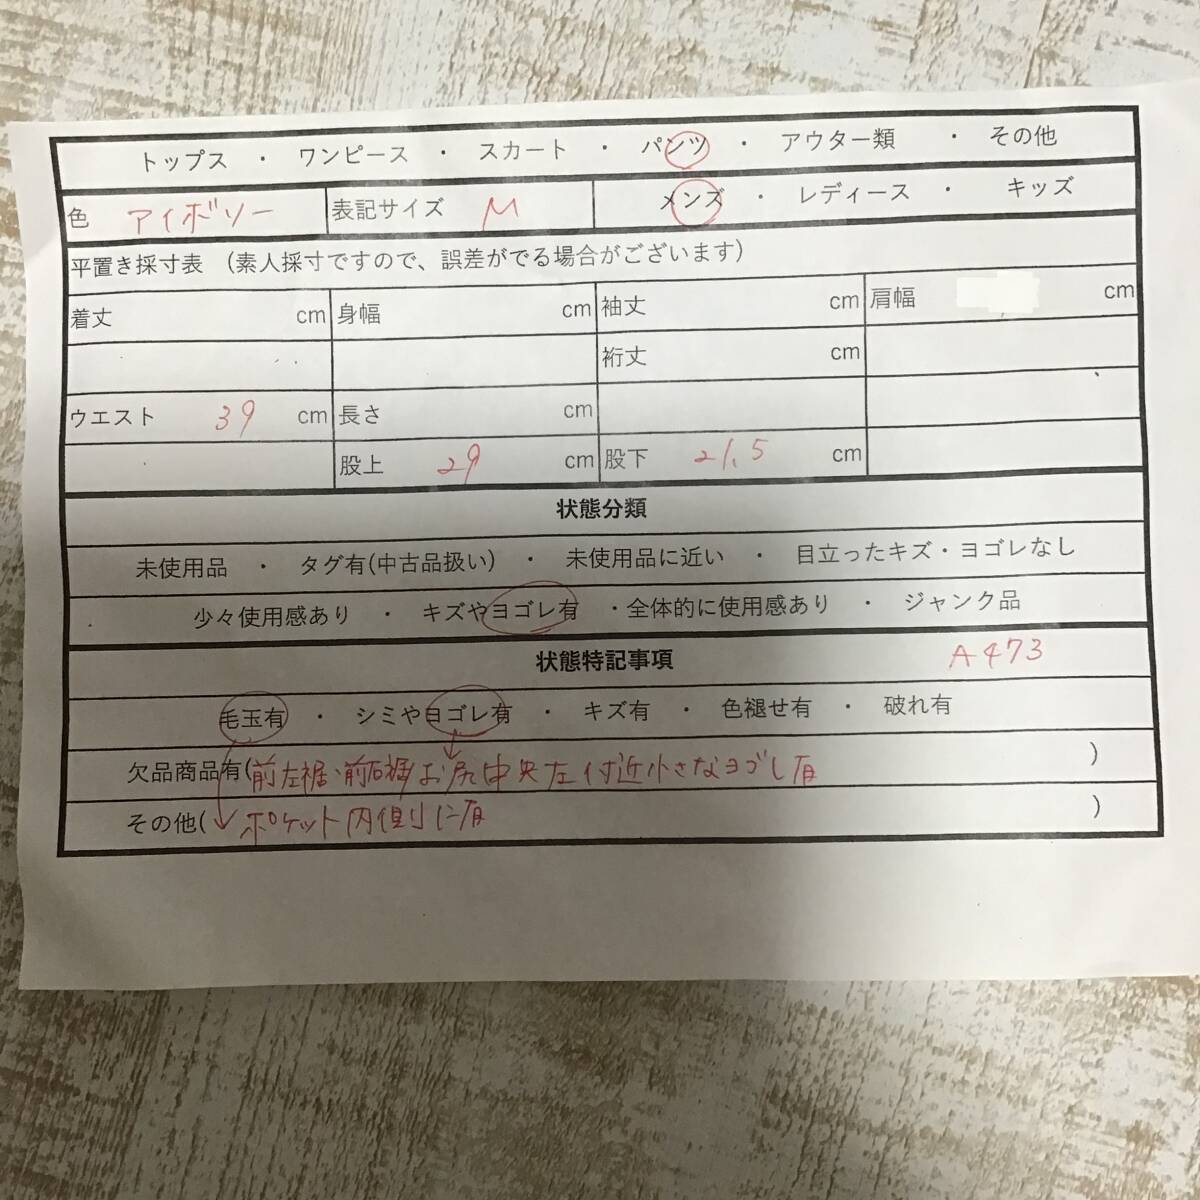 トップス ・ ワンピース ・ スカート ・ パンツ ・ アウター類 ・ その他
色 アイボリー 表記サイズ M メンズ ・ レディース ・ キッズ
平置き採寸表 (素人採寸ですので、誤差がでる場合がございます)
着丈 cm 身幅 cm 袖丈 cm 肩幅 cm
裄丈 cm
ウエスト 39 cm 長さ cm
股上 29 cm 股下 21.5 cm
状態分類
未使用品 ・ タグ有(中古品扱い) ・ 未使用品に近い ・ 目立ったキズ・ヨゴレなし
少々使用感あり ・ キズやヨゴレ有 ・全体的に使用感あり ・ ジャンク品
状態特記事項 A473
毛玉有 ・ シミやヨゴレ有 ・ キズ有 ・ 色褪せ有 ・ 破れ有
欠品商品有(前左裾、前右裾、お尻中央左付近小さなヨゴレ有 )
その他( ポケット内側に有 )